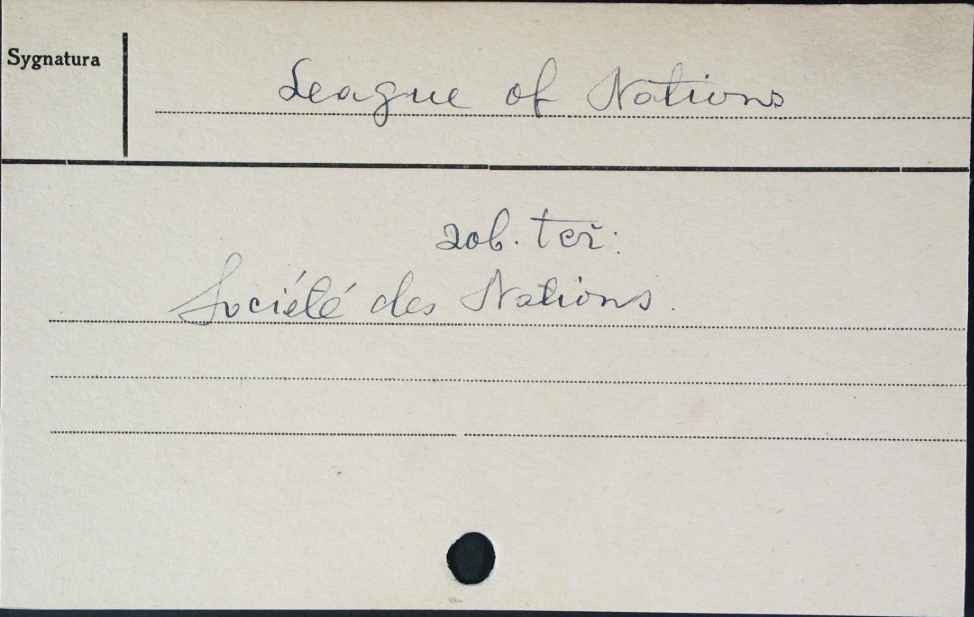 Sygnatura
League of Nations
zob. też:
Société des Nations.